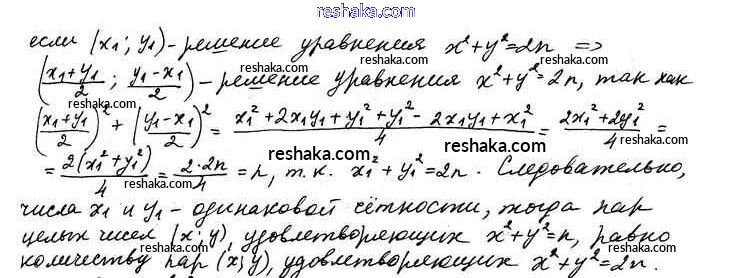 www.reshaka.com
если (x₁; y₁) - решение уравнения x² + y² = 2n =>
((x₁+y₁)/2 ; (y₁-x₁)/2) - решение уравнения x² + y² = 2n, так как
((x₁+y₁)/2)² + ((y₁-x₁)/2)² = (x₁² + 2x₁y₁ + y₁² + y₁² - 2x₁y₁ + x₁²)/4 = (2x₁² + 2y₁²)/4 =
= 2(x₁² + y₁²)/4 = (2·2n)/4 = n, т.к. x₁² + y₁² = 2n. Следовательно,
числа x₁ и y₁ - одинаковой чётности, тогда пар
целых чисел (x; y), удовлетворяющих x² + y² = n, равно
количеству пар (x; y), удовлетворяющих x² + y² = 2n.
reshaka.com
reshaka.com
reshaka.com
reshaka.com
reshaka.com
reshaka.com
reshaka.com
reshaka.com
reshaka.com
reshaka.com
reshaka.com